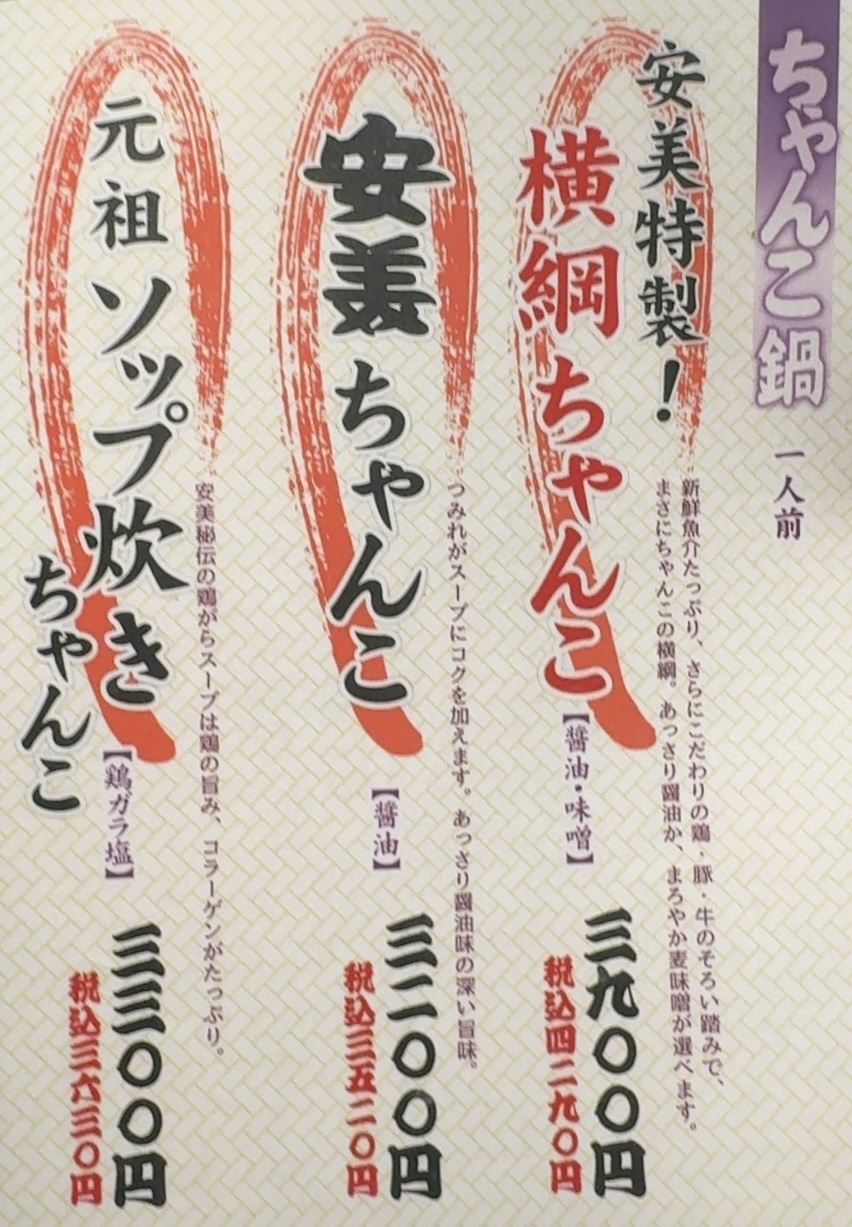 ちゃんこ鍋
一人前
安美特製!
横綱ちゃんこ
【醤油・味噌】
新鮮魚介たっぷり、さらにこだわりの鶏・豚・牛のそろい踏みで、
まさにちゃんこの横綱。あっさり醤油か、まろやか麦味噌が選べます。
三九〇〇円
税込四二九〇円
安美ちゃんこ
【醤油】
つみれがスープにコクを加えます。あっさり醤油味の深い旨味。
三二〇〇円
税込三五二〇円
元祖ソップ炊き
ちゃんこ
【鶏ガラ塩】
安美秘伝の鶏がらスープは鶏の旨み、コラーゲンがたっぷり。
三三〇〇円
税込三六三〇円